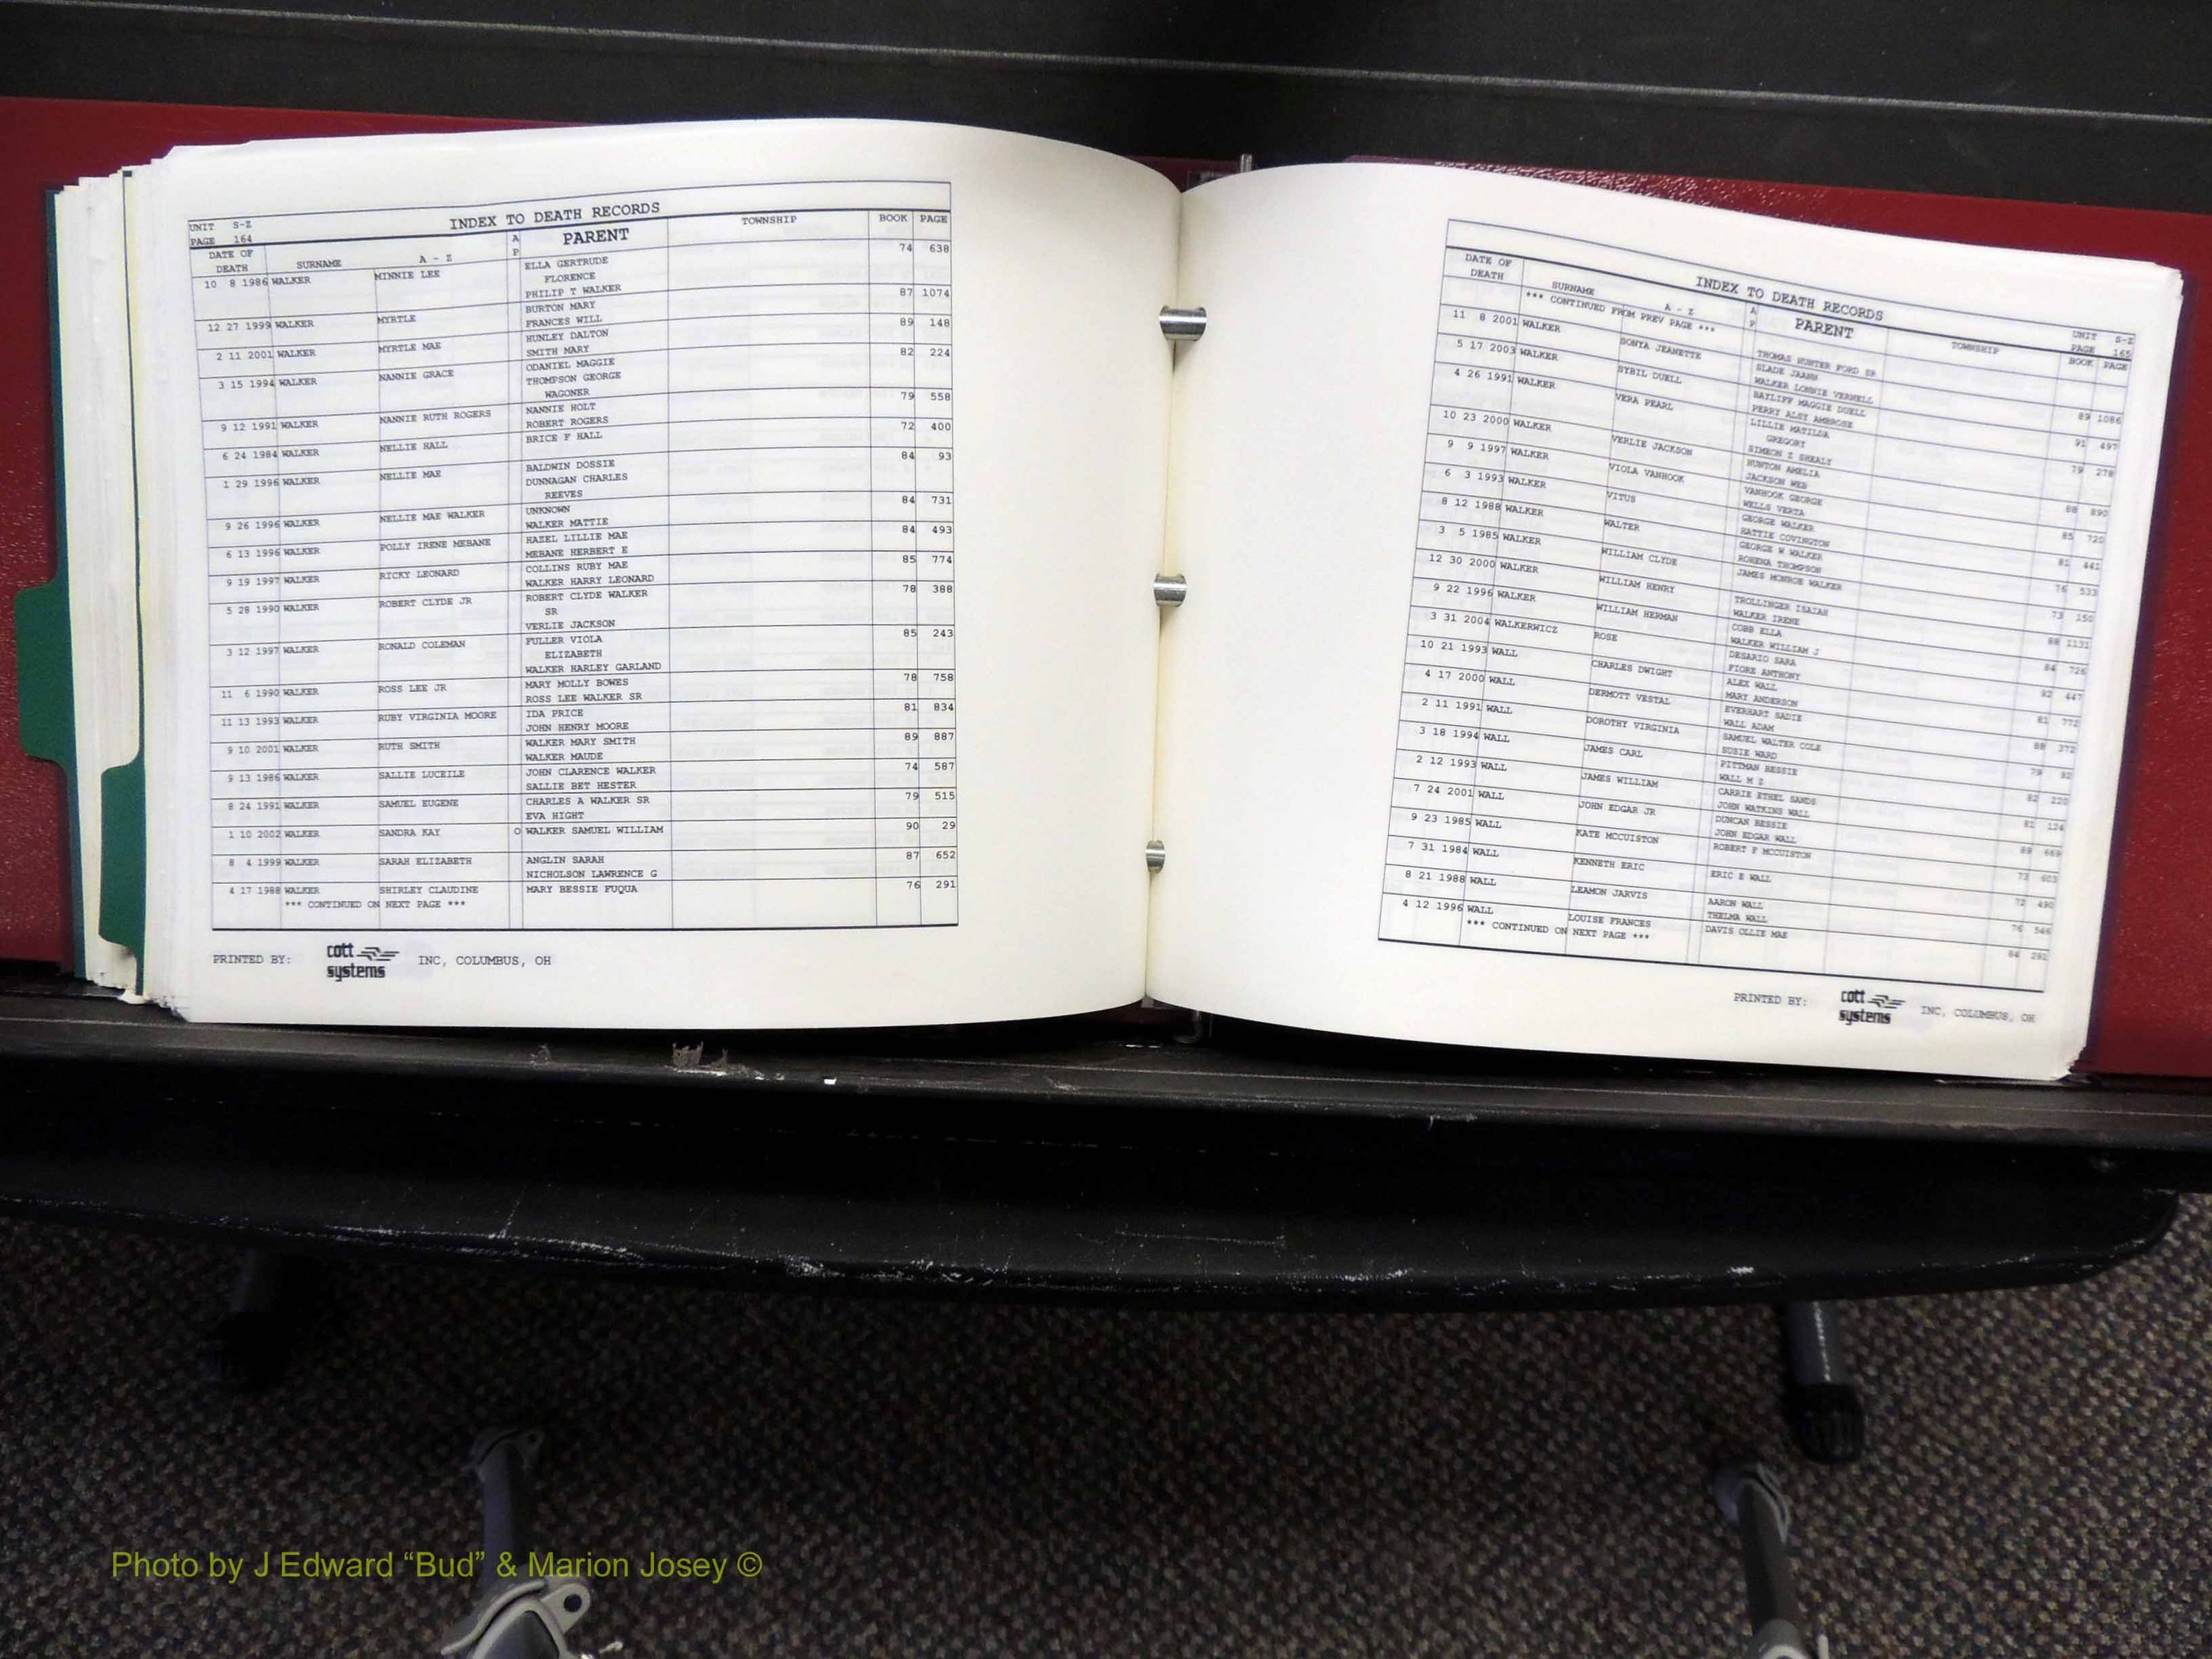 UNIT S-Z
PAGE 164
INDEX TO DEATH RECORDS
DATE OF DEATH SURNAME A - Z A P PARENT TOWNSHIP BOOK PAGE
10 8 1986 WALKER MINNIE LEE ELLA GERTRUDE 74 638
FLORENCE
PHILIP T WALKER
12 27 1999 WALKER MYRTLE BURTON MARY 87 1074
FRANCES WILL
2 11 2001 WALKER MYRTLE MAE HUNLEY DALTON 89 148
SMITH MARY
3 15 1994 WALKER NANNIE GRACE ODANIEL MAGGIE 82 224
THOMPSON GEORGE
WAGONER
9 12 1991 WALKER NANNIE RUTH ROGERS NANNIE HOLT 79 558
ROBERT ROGERS
6 24 1984 WALKER NELLIE HALL BRICE F HALL 72 400
1 29 1996 WALKER NELLIE MAE BALDWIN DOSSIE 84 93
DUNNAGAN CHARLES
REEVES
9 26 1996 WALKER NELLIE MAE WALKER UNKNOWN 84 731
WALKER MATTIE
6 13 1996 WALKER POLLY IRENE MEBANE HAZEL LILLIE MAE 84 493
MEBANE HERBERT E
9 19 1997 WALKER RICKY LEONARD COLLINS RUBY MAE 85 774
WALKER HARRY LEONARD
5 28 1990 WALKER ROBERT CLYDE JR ROBERT CLYDE WALKER 78 388
SR
VERLIE JACKSON
3 12 1997 WALKER RONALD COLEMAN FULLER VIOLA 85 243
ELIZABETH
WALKER HARLEY GARLAND
11 6 1990 WALKER ROSS LEE JR MARY MOLLY BOWES 78 758
ROSS LEE WALKER SR
11 13 1993 WALKER RUBY VIRGINIA MOORE IDA PRICE 81 834
JOHN HENRY MOORE
9 10 2001 WALKER RUTH SMITH WALKER MARY SMITH 89 887
WALKER MAUDE
9 13 1986 WALKER SALLIE LUCEILE JOHN CLARENCE WALKER 74 587
SALLIE BET HESTER
8 24 1991 WALKER SAMUEL EUGENE CHARLES A WALKER SR 79 515
EVA HIGHT
1 10 2002 WALKER SANDRA KAY O WALKER SAMUEL WILLIAM 90 29
8 4 1999 WALKER SARAH ELIZABETH ANGLIN SARAH 87 652
NICHOLSON LAWRENCE G
4 17 1988 WALKER SHIRLEY CLAUDINE MARY BESSIE FUQUA 76 291
*** CONTINUED ON NEXT PAGE ***
PRINTED BY: cott systems INC, COLUMBUS, OH
INDEX TO DEATH RECORDS
UNIT S-Z
PAGE 165
DATE OF DEATH SURNAME A - Z A P PARENT TOWNSHIP BOOK PAGE
*** CONTINUED FROM PREV PAGE ***
THOMAS HUNTER FORD SR
11 8 2001 WALKER SONYA JEANETTE SLADE JAANN 89 1086
WALKER LONNIE VERNELL
5 17 2003 WALKER SYBIL DUELL BAYLIFF MAGGIE DUELL 91 497
PERRY ALSY AMBROSE
4 26 1991 WALKER VERA PEARL LILLIE MATILDA 79 278
GREGORY
SIMEON Z SHEALY
10 23 2000 WALKER VERLIE JACKSON HUNTON AMELIA 88 890
JACKSON WEB
9 9 1997 WALKER VIOLA VANHOOK VANHOOK GEORGE 85 720
WELLS VERTA
6 3 1993 WALKER VITUS GEORGE WALKER 81 441
HATTIE COVINGTON
8 12 1988 WALKER WALTER GEORGE W WALKER 76 533
ROHENA THOMPSON
3 5 1985 WALKER WILLIAM CLYDE JAMES MONROE WALKER 73 150
12 30 2000 WALKER WILLIAM HENRY TROLLINGER ISAIAH 88 1131
WALKER IRENE
9 22 1996 WALKER WILLIAM HERMAN COBB ELLA 84 726
WALKER WILLIAM J
3 31 2004 WALKERWICZ ROSE DESARIO SARA 92 447
FIORE ANTHONY
10 21 1993 WALL CHARLES DWIGHT ALEX WALL 81 772
MARY ANDERSON
4 17 2000 WALL DERMOTT VESTAL EVERHART SADIE 88 372
WALL ADAM
2 11 1991 WALL DOROTHY VIRGINIA SAMUEL WALTER COLE 79 92
SUSIE WARD
3 18 1994 WALL JAMES CARL PITTMAN BESSIE 82 220
WALL M Z
2 12 1993 WALL JAMES WILLIAM CARRIE ETHEL SANDS 81 124
JOHN WATKINS WALL
7 24 2001 WALL JOHN EDGAR JR DUNCAN BESSIE 89 669
JOHN EDGAR WALL
9 23 1985 WALL KATE MCCUISTON ROBERT F MCCUISTON 73 603
7 31 1984 WALL KENNETH ERIC ERIC E WALL 72 490
8 21 1988 WALL LEAMON JARVIS AARON WALL 76 546
THELMA WALL
4 12 1996 WALL LOUISE FRANCES DAVIS OLLIE MAE 84 291
*** CONTINUED ON NEXT PAGE ***
PRINTED BY: cott systems INC, COLUMBUS, OH
Photo by J Edward “Bud” & Marion Josey ©